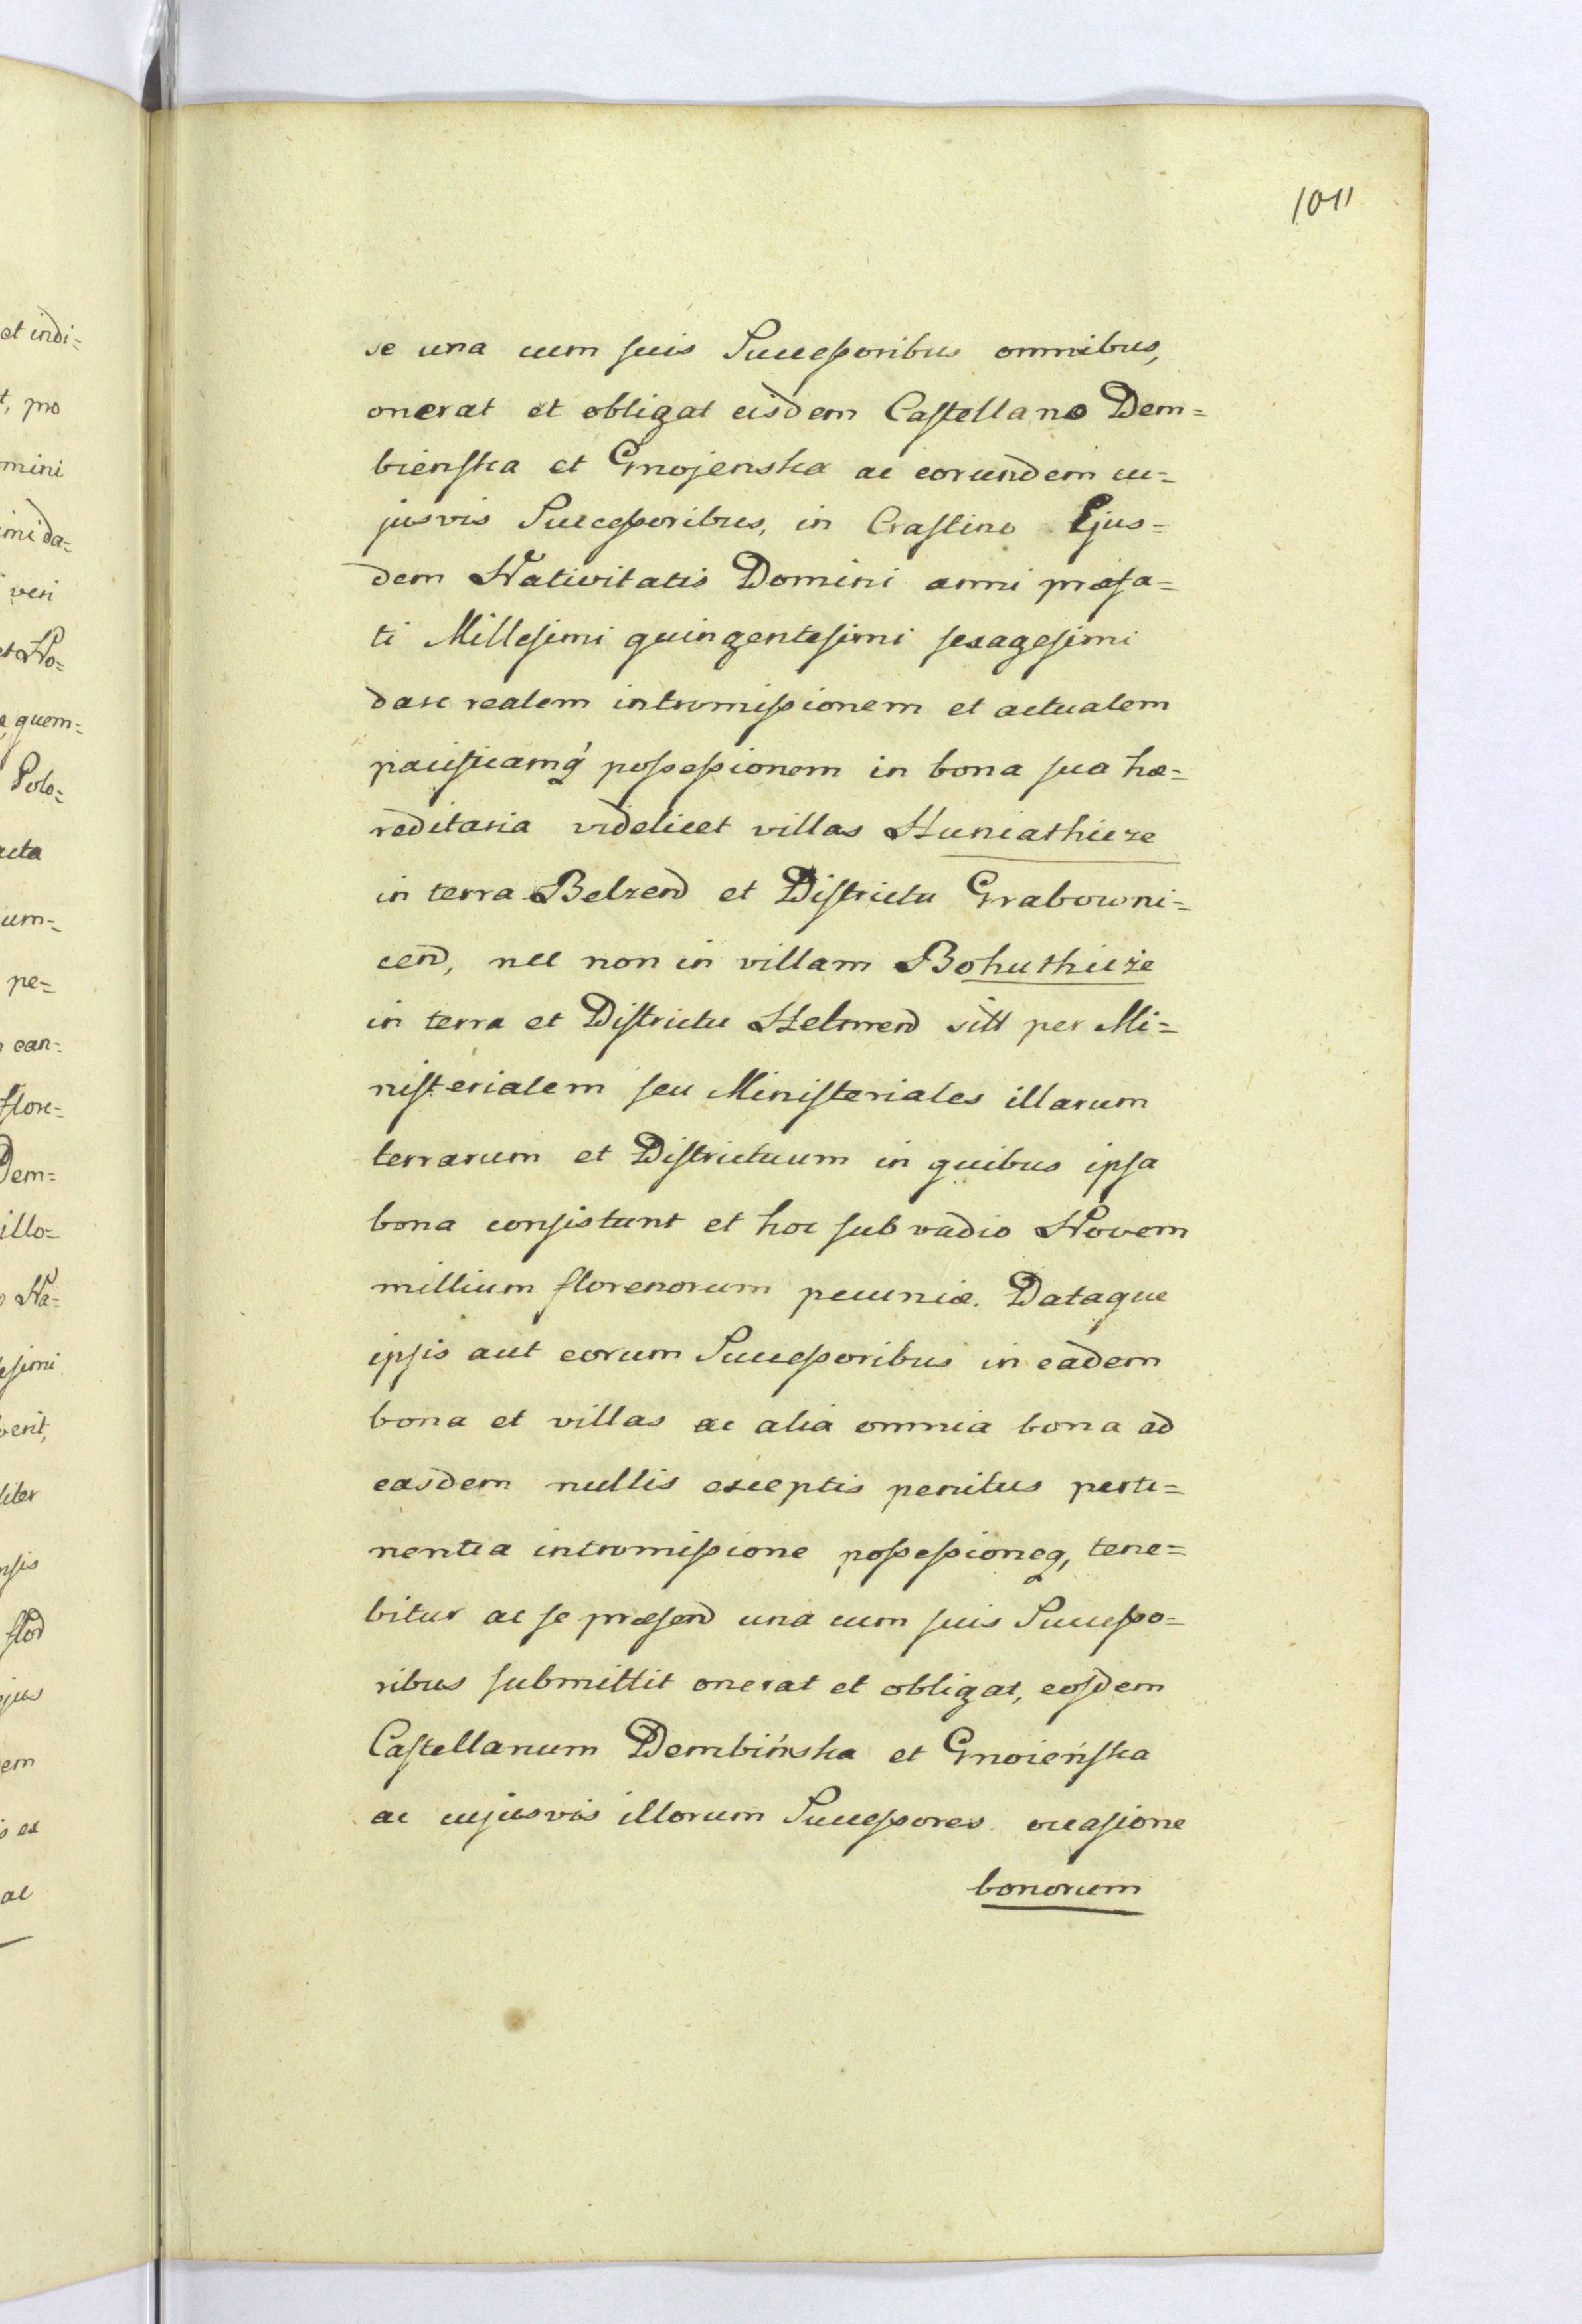 1011
se una cum suis Successoribus omnibus,
onerat et obligat eisdem Castellano Dem=
bienska et Gnojenska ac eorundem cu=
jusvis Successoribus, in Crastino Ejus=
dem Nativitatis Domini anni præfa=
ti Millesimi quingentesimi sexagesimi
dare realem intromissionem et actualem
pacificamq́ possessionem in bona sua hæ=
reditaria videlicet villas Huniathicze
in terra Belzen̄ et Districtu Grabowni=
cen̄, nec non in villam Bohuthicże
in terra et Districtu Helmen̄ sitt per Mi=
nisterialem seu Ministeriales illarum
terrarum et Districtuum in quibus ipsa
bona consistunt et hoc sub vadio Novem
millium florenorum pecuniæ. Dataque
ipsis aut eorum Successoribus in eadem
bona et villas ac alia omnia bona ad
easdem nullis exceptis penitus perti=
nentia intromissione possessioneq, tene=
bitur ac se præsen̄ una cum suis Successo=
ribus submittit onerat et obligat, eosdem
Castellanum Dembińska et Gnoieńska
ac cujusvis illorum Successores occasione
bonorum
et indi=
t, pro
mini
imi da=
veri
et No=
quem=
Polo=
acta
ium=
pe=
can=
flore=
Dem=
illo=
Na=
esimi
verit,
liter
nsis
flor̄
ejus
em
s ex
ac